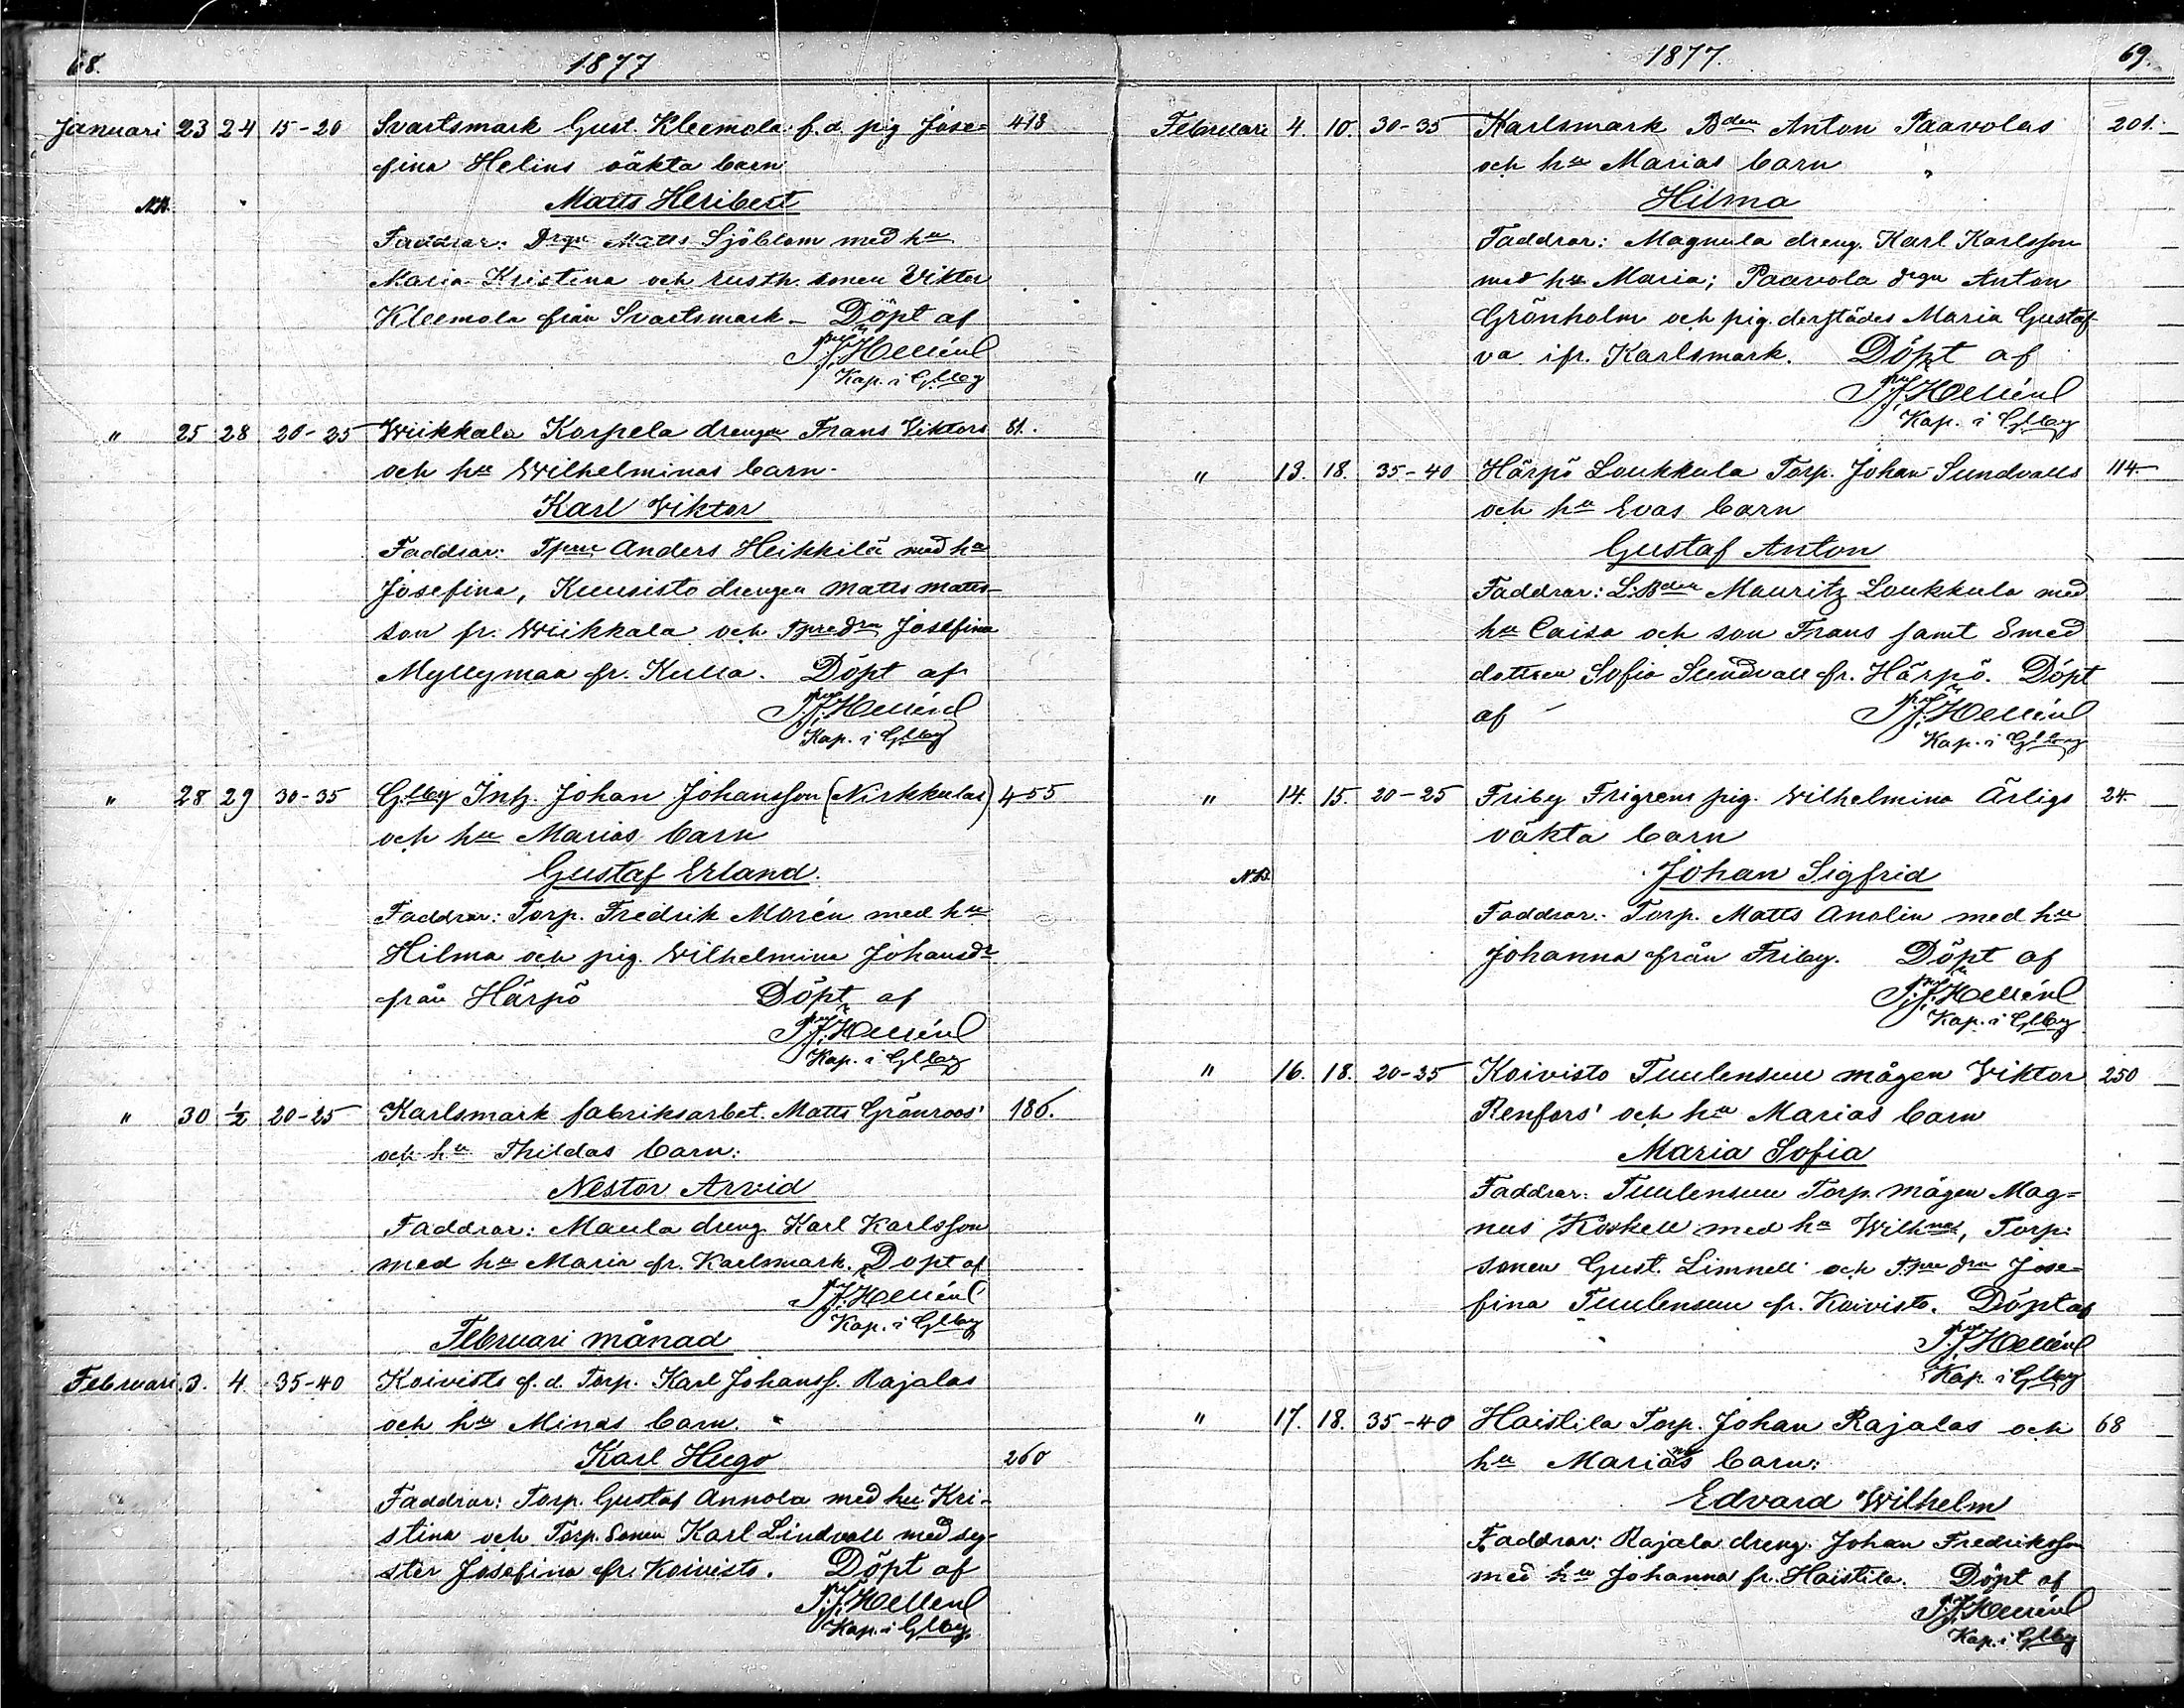 68. 1877
Januari 23 24 15-20 Svartsmark Gust. Kleemola f. d. pig Jose=
fina Helins oäkta barn 418
Matts Heribert
Faddrar: Drgn Matts Sjöblom med hu
Maria Kristina och rusth. sonen Viktor
Kleemola från Svartsmark - Döpt af
Kap. i Glby
" 25 28 20-25 Wiikkala Korpela drengen Frans Viktors 81.
och hu Wilhelminas barn.
Karl Viktor
Faddrar: Tparen Anders Heikkilä med hu
Josefina, Kuusisto drengen Matts Matts-
son fr. Wiikkala och Tpredrn Josefina
Myllymaa fr. Kulla. Döpt af
Kap. i Glby
" 28 29 30-35 Glby Inh. Johan Johansson (Nirkkulas) 455
och hu Marias barn
Gustaf Erland.
Faddrar: Torp. Fredrik Morén med hu
Hilma och pig. Wilhelmina Johansdr
från Härpö Döpt af
Kap. i Glby
" 30 1/2 20-25 Karlsmark fabriksarbet. Matts Grönroos' 186.
och hu Thildas barn:
Nestor Arvid
Faddrar: Maula dreng Karl Karlsson
med hu Maria fr. Karlsmark. Döpt af
Kap. i Glby
Februari månad
Februari 3. 4. 35-40 Koivisto f. d. Torp. Karl Johanss. Rajalas
och hu Minas barn.
Karl Hugo 260
Faddrar: Torp. Gustaf Annola med hu Kri-
stina och Torp. Sonen Karl Lindvall med sy-
ster Josefina fr. Koivisto. Döpt af
Kap. i Glby
1877. 69.
Februari 4. 10. 30-35 Karlsmark Bden Anton Paavolas 201.
och hu Marias barn
Hilma
Faddrar: Magnula dreng. Karl Karlsson
med hu Maria; Paavola drgn Anton
Grönholm och pig. derstädes Maria Gustaf-
va ifr. Karlsmark. Döpt af
Kap. i Glby
" 13. 18. 35-40 Härpö Loukkula Torp. Johan Sundvalls 114
och hu Evas barn
Gustaf Anton
Faddrar: L.Bden Mauritz Loukkula med
hu Caisa och son Frans samt Smed
dottren Sofia Sundvall fr. Härpö. Döpt
af
Kap. i Glby
" 14. 15. 20-25 Friby Frigrens pig. Wilhelmina Ärligs 24.
oäkta barn
N.B. Johan Sigfrid
Faddrar. Torp. Matts Anolin med hu
Johanna från Friby. Döpt af
Kap. i Glby
" 16. 18. 20-25 Koivisto Tuulensuu mågen Viktor 250
Renfors' och hu Marias barn
Maria Sofia
Faddrar: Tuulensuu Torp. mågen Mag=
nus Koskell med hu Wilhna, Torp.
sonen Gust. Limnell och Tpredrn Jose=
fina Tuulensuu fr. Koivisto. Döpt af
Kap. i Glby
" 17. 18. 35-40 Haistila Torp. Johan Rajalas och 68
hu Marias barn:
Edvard Wilhelm
Faddrar: Rajala dreng. Johan Fredriksson
med hu Johanna fr. Haistila. Döpt af
Kap. i Glby